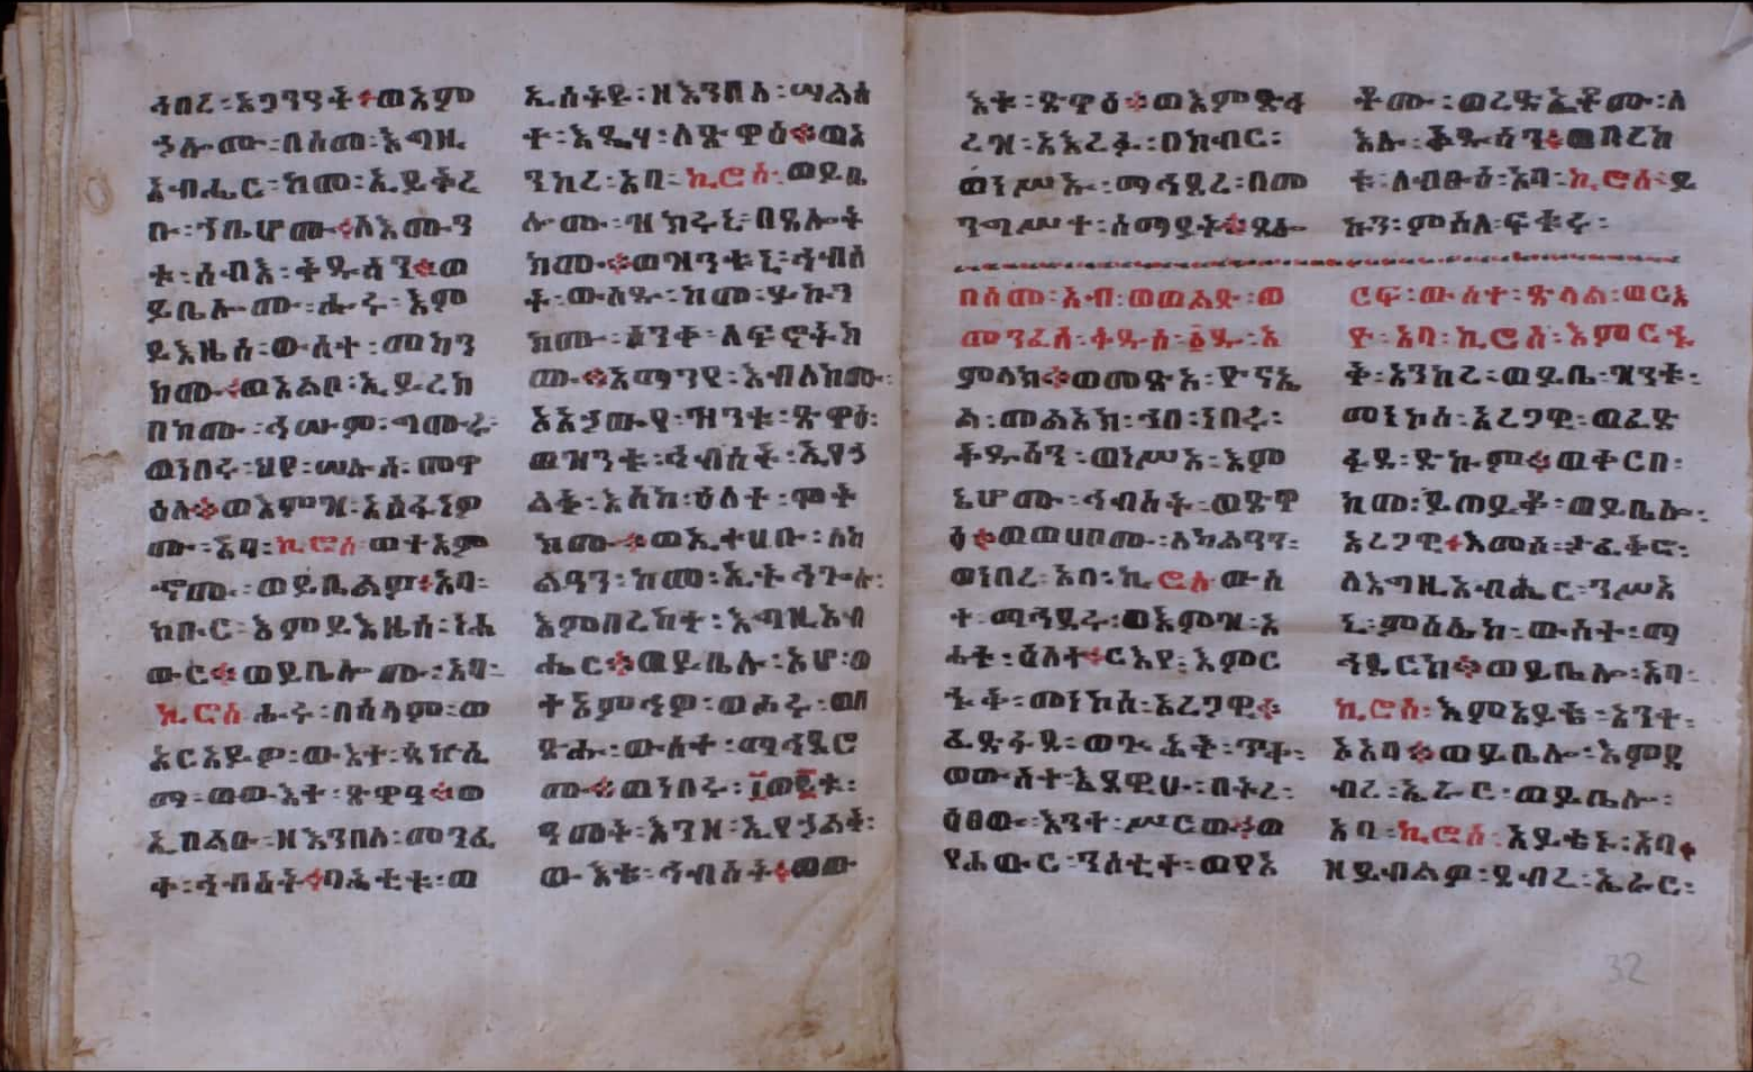 ሓበረ፡አጋንንት፡ወእም
ኵሎሙ፡በስመ፡እግዚ
አብሔር፡ከመ፡ኢይቅረ
ቡ፡ኀቤሆሙ፡ለእሙን
ቱ፡ሰብእ፡ቅዱሳን፡ወ
ይቤሎሙ፡ሑሩ፡እም
ይእዜሰ፡ውስተ፡መካን
ክሙ፡ወአልቦ፡ኢይረክ
በክሙ፡ሕሡም፡ግሙራ፡
ወነበሩ፡ህየ፡ሠሉሰ፡መዋ
ዕለ፡ወእምዝ፡አስፋነዎ
ሙ፡አባ፡ኪሮስ፡ወተአም
ኖሙ፡ወይቤልዎ፡አባ፡
ክቡር፡እምይእዜሰ፡ነሐ
ውር፡ወይቤሎሙ፡አባ፡
ኪሮስ፡ሑሩ፡በሰላም፡ወ
አርአይዎ፡ውእተ፡
ማ፡ወውእተ፡ጽዋዓ፡ወ
ኢበልዑ፡ዘእንበለ፡መንፈ
ቀ፡ኅብስት፡ባሕቲቱ፡ወ
ኢሰትዩ፡ዘእንበለ፡ሣልስ
ተ፡እዴሃ፡ለጽዋዕ፡ወአ
ንከረ፡አባ፡ኪሮስ፡ወይቤ
ሎሙ፡ዝክሩኒ፡በጸሎት
ክሙ፡ወዝንቱኒ፡ኅብስ
ት፡ውስዱ፡ከመ፡ይኩን
ክሙ፡ስንቀ፡ለፍኖትክ
ሙ፡እማንየ፡እብለክሙ፡
አአኃውየ፡ዝንቱ፡ጽዋዕ፡
ወዝንቱ፡ኅብስት፡ኢየኃ
ልቅ፡እስከ፡ዕለተ፡ሞት
ክሙ፡ወኢተሀቡ፡ለካ
ልዓን፡ከመ፡ኢትኅጐሉ፡
እምበረከተ፡እግዚአብ
ሔር፡ወይቤሉ፡እሆ፡ወ
ተአምኅዎ፡ወሖሩ፡ወበ
ጽሑ፡ውስተ፡ማኅደሮ
ሙ፡ወነበሩ፡፲ወ፪ቱ፡
ዓመት፡እንዘ፡ኢየኃልቅ፡
ውእቱ፡ኅብስት፡ወው
እቱ፡ጽዋዕ፡ወእምድኅ
ረዝ፡አእረፉ፡በክብር፡
ወነሥኡ፡ማኅደረ፡በመ
ንግሥተ፡ሰማያት፡ጸሎ
ቶሙ፡ወረድኤቶሙ፡ለ
እሉ፡ቅዱሳን፡ወበረከ
ቱ፡ለብፁዕ፡አባ፡ኪሮስ፡ይ
ኩን፡ምስለ፡ፍቁሩ፡
በስመ፡አብ፡ወወልድ፡ወ
መንፈስ፡ቅዱስ፡፩ዱ፡አ
ምላክ፡ወመጽአ፡ዮናኤ
ል፡መልአክ፡ኀበ፡ነበሩ፡
ቅዱሳን፡ወነሥአ፡እም
ኔሆሙ፡ኅብስት፡ወጽዋ
ዕ፡ወወሀቦሙ፡ለካልዓን፡
ወነበረ፡አባ፡ኪሮስ፡ውስ
ተ፡ማኅደሩ፡ወእምዝ፡አ
ሐቲ፡ዕለተ፡ርእየ፡እምር
ኁቅ፡መነኮሰ፡አረጋዊ፡
ፈድፋደ፡ወጐሕቅ፡ጥቀ፡
ወውስተ፡እደዊሁ፡በትረ፡
ዕፀው፡እንተ፡ሥርው፡ወ
የሐውር፡ንስቲተ፡ወየአ
ርፍ፡ውስተ፡ጽላል፡ወርእ
ዮ፡አባ፡ኪሮስ፡እምርኁ
ቅ፡አንከረ፡ወይቤ፡ዝንቱ፡
መነኮስ፡አረጋዊ፡ወፈድ
ፋደ፡ድኩም፡ወቀርበ፡
ከመ፡ይጠይቆ፡ወይቤሎ፡
አረጋዊ፡እመሰ፡ታፈቅሮ፡
ለእግዚአብሔር፡ንሥአ
ኒ፡ምስሌከ፡ውስተ፡ማ
ኅደርከ፡ወይቤሎ፡አባ፡
ኪሮስ፡እምአይቴ፡አንተ፡
አአባ፡ወይቤሎ፡እምደ
ብረ፡ኤራር፡ወይቤሎ፡
አባ፡ኪሮስ፡አይቴኑ፡አባ፡
ዘይብልዎ፡ደብረ፡ኤራር፡
32